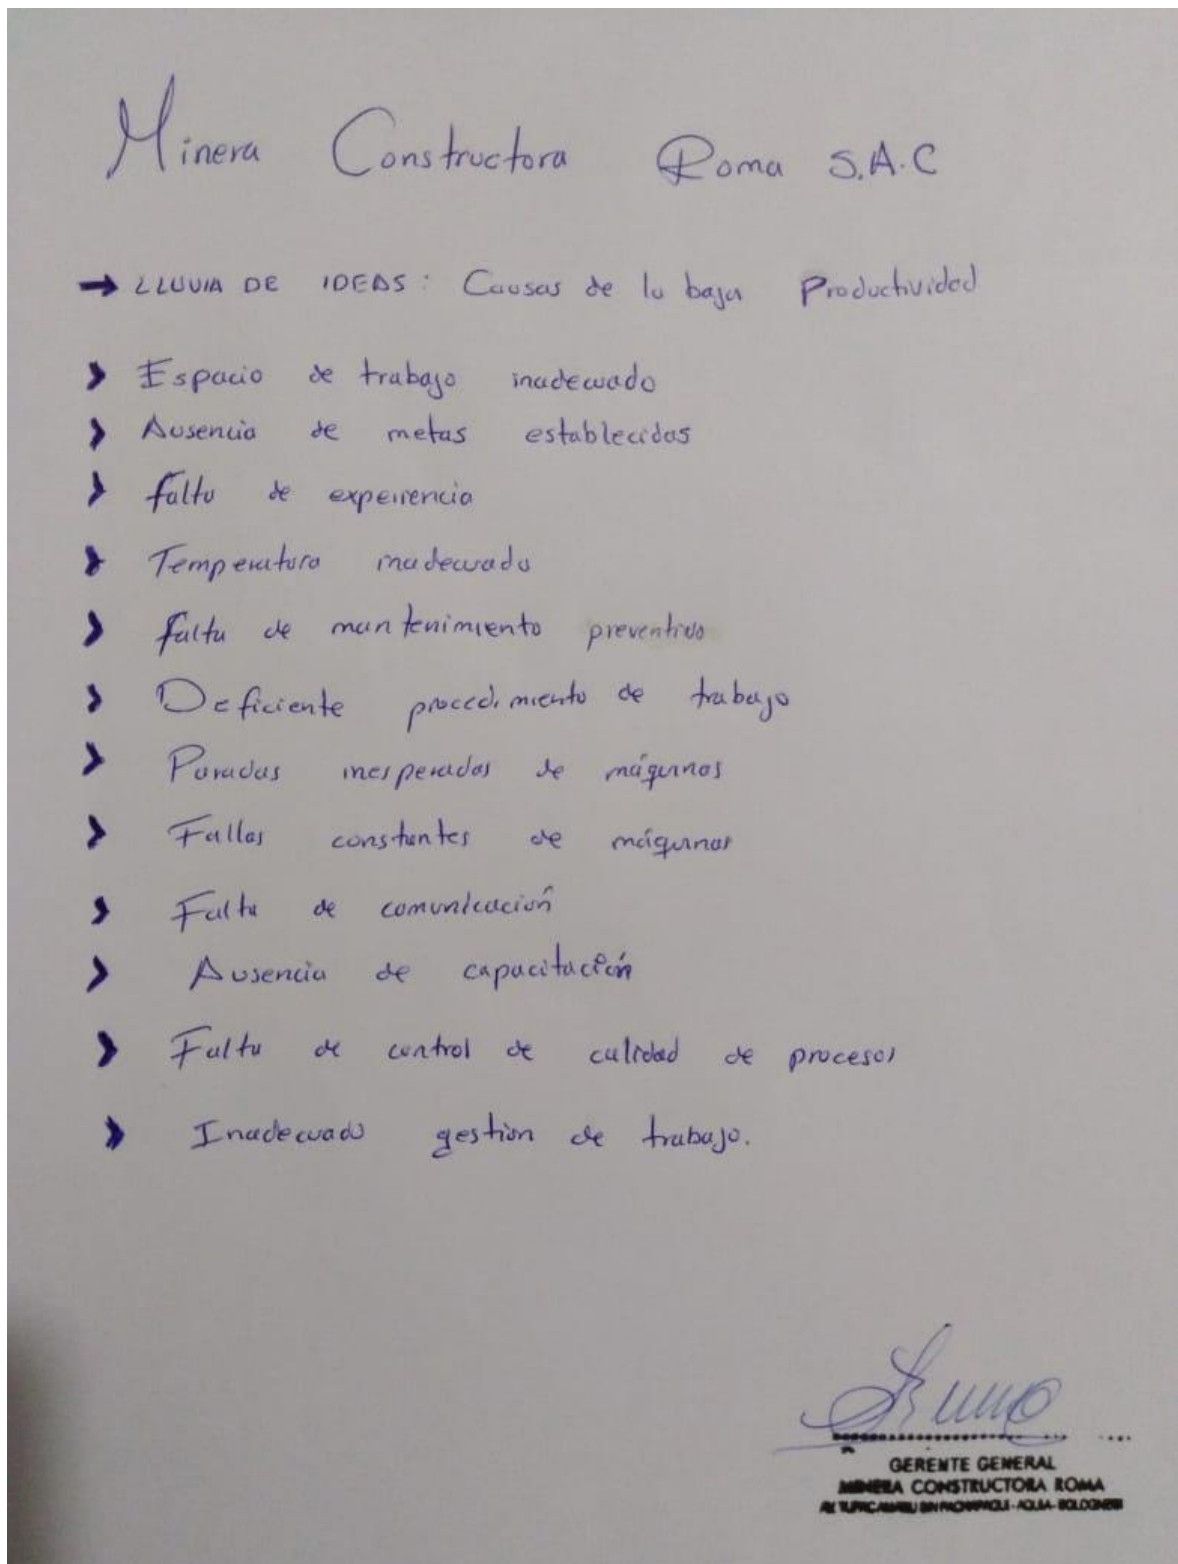 Minera Constructora Roma S.A.C
→ LLUVIA DE IDEAS: Causas de la baja Productividad
› Espacio de trabajo inadecuado
› Ausencia de metas establecidas
› falta de experiencia
› Temperatura inadecuada
› falta de mantenimiento preventivo
› Deficiente procedimiento de trabajo
› Paradas inesperadas de máquinas
› Fallas constantes de máquinas
› Falta de comunicación
› Ausencia de capacitación
› Falta de control de calidad de procesos
› Inadecuado gestión de trabajo.
GERENTE GENERAL
MINERA CONSTRUCTORA ROMA
AV. TUPAC AMARU - AQUIA - BOLOGNESI